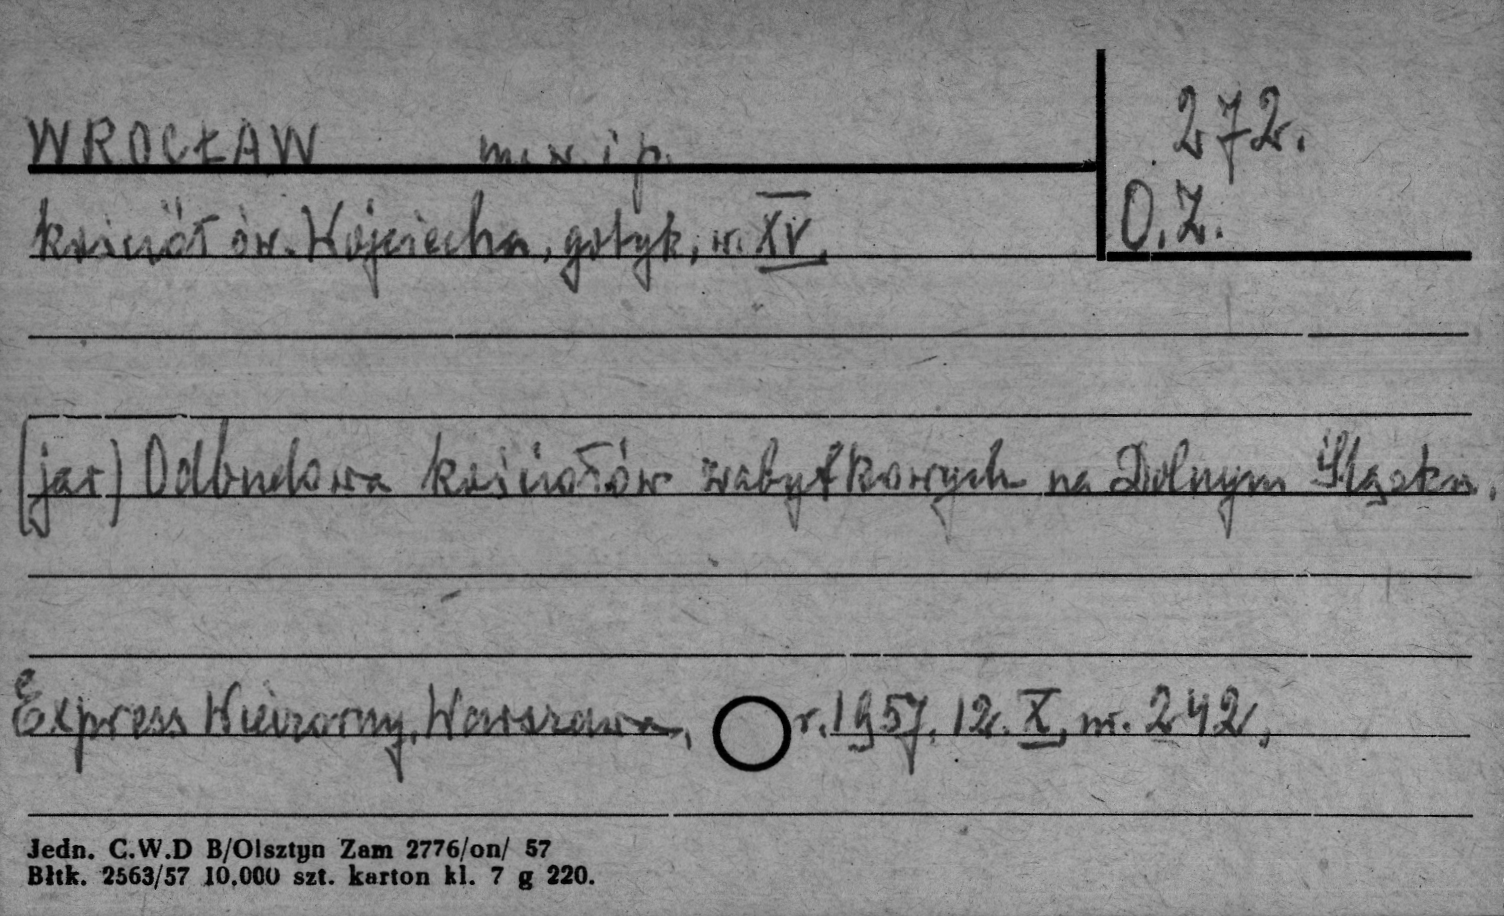 WROCŁAW m. w. i p.
272.
O.Z.
kościół św. Wojciecha, gotyk, w. XV.
(jar) Odbudowa kościołów zabytkowych na Dolnym Śląsku.
Express Wieczorny, Warszawa, r. 1957. 12. X, nr. 242,
Jedn. C.W.D B/Olsztyn Zam 2776/on/ 57
Błtk. 2563/57 10.000 szt. karton kl. 7 g 220.